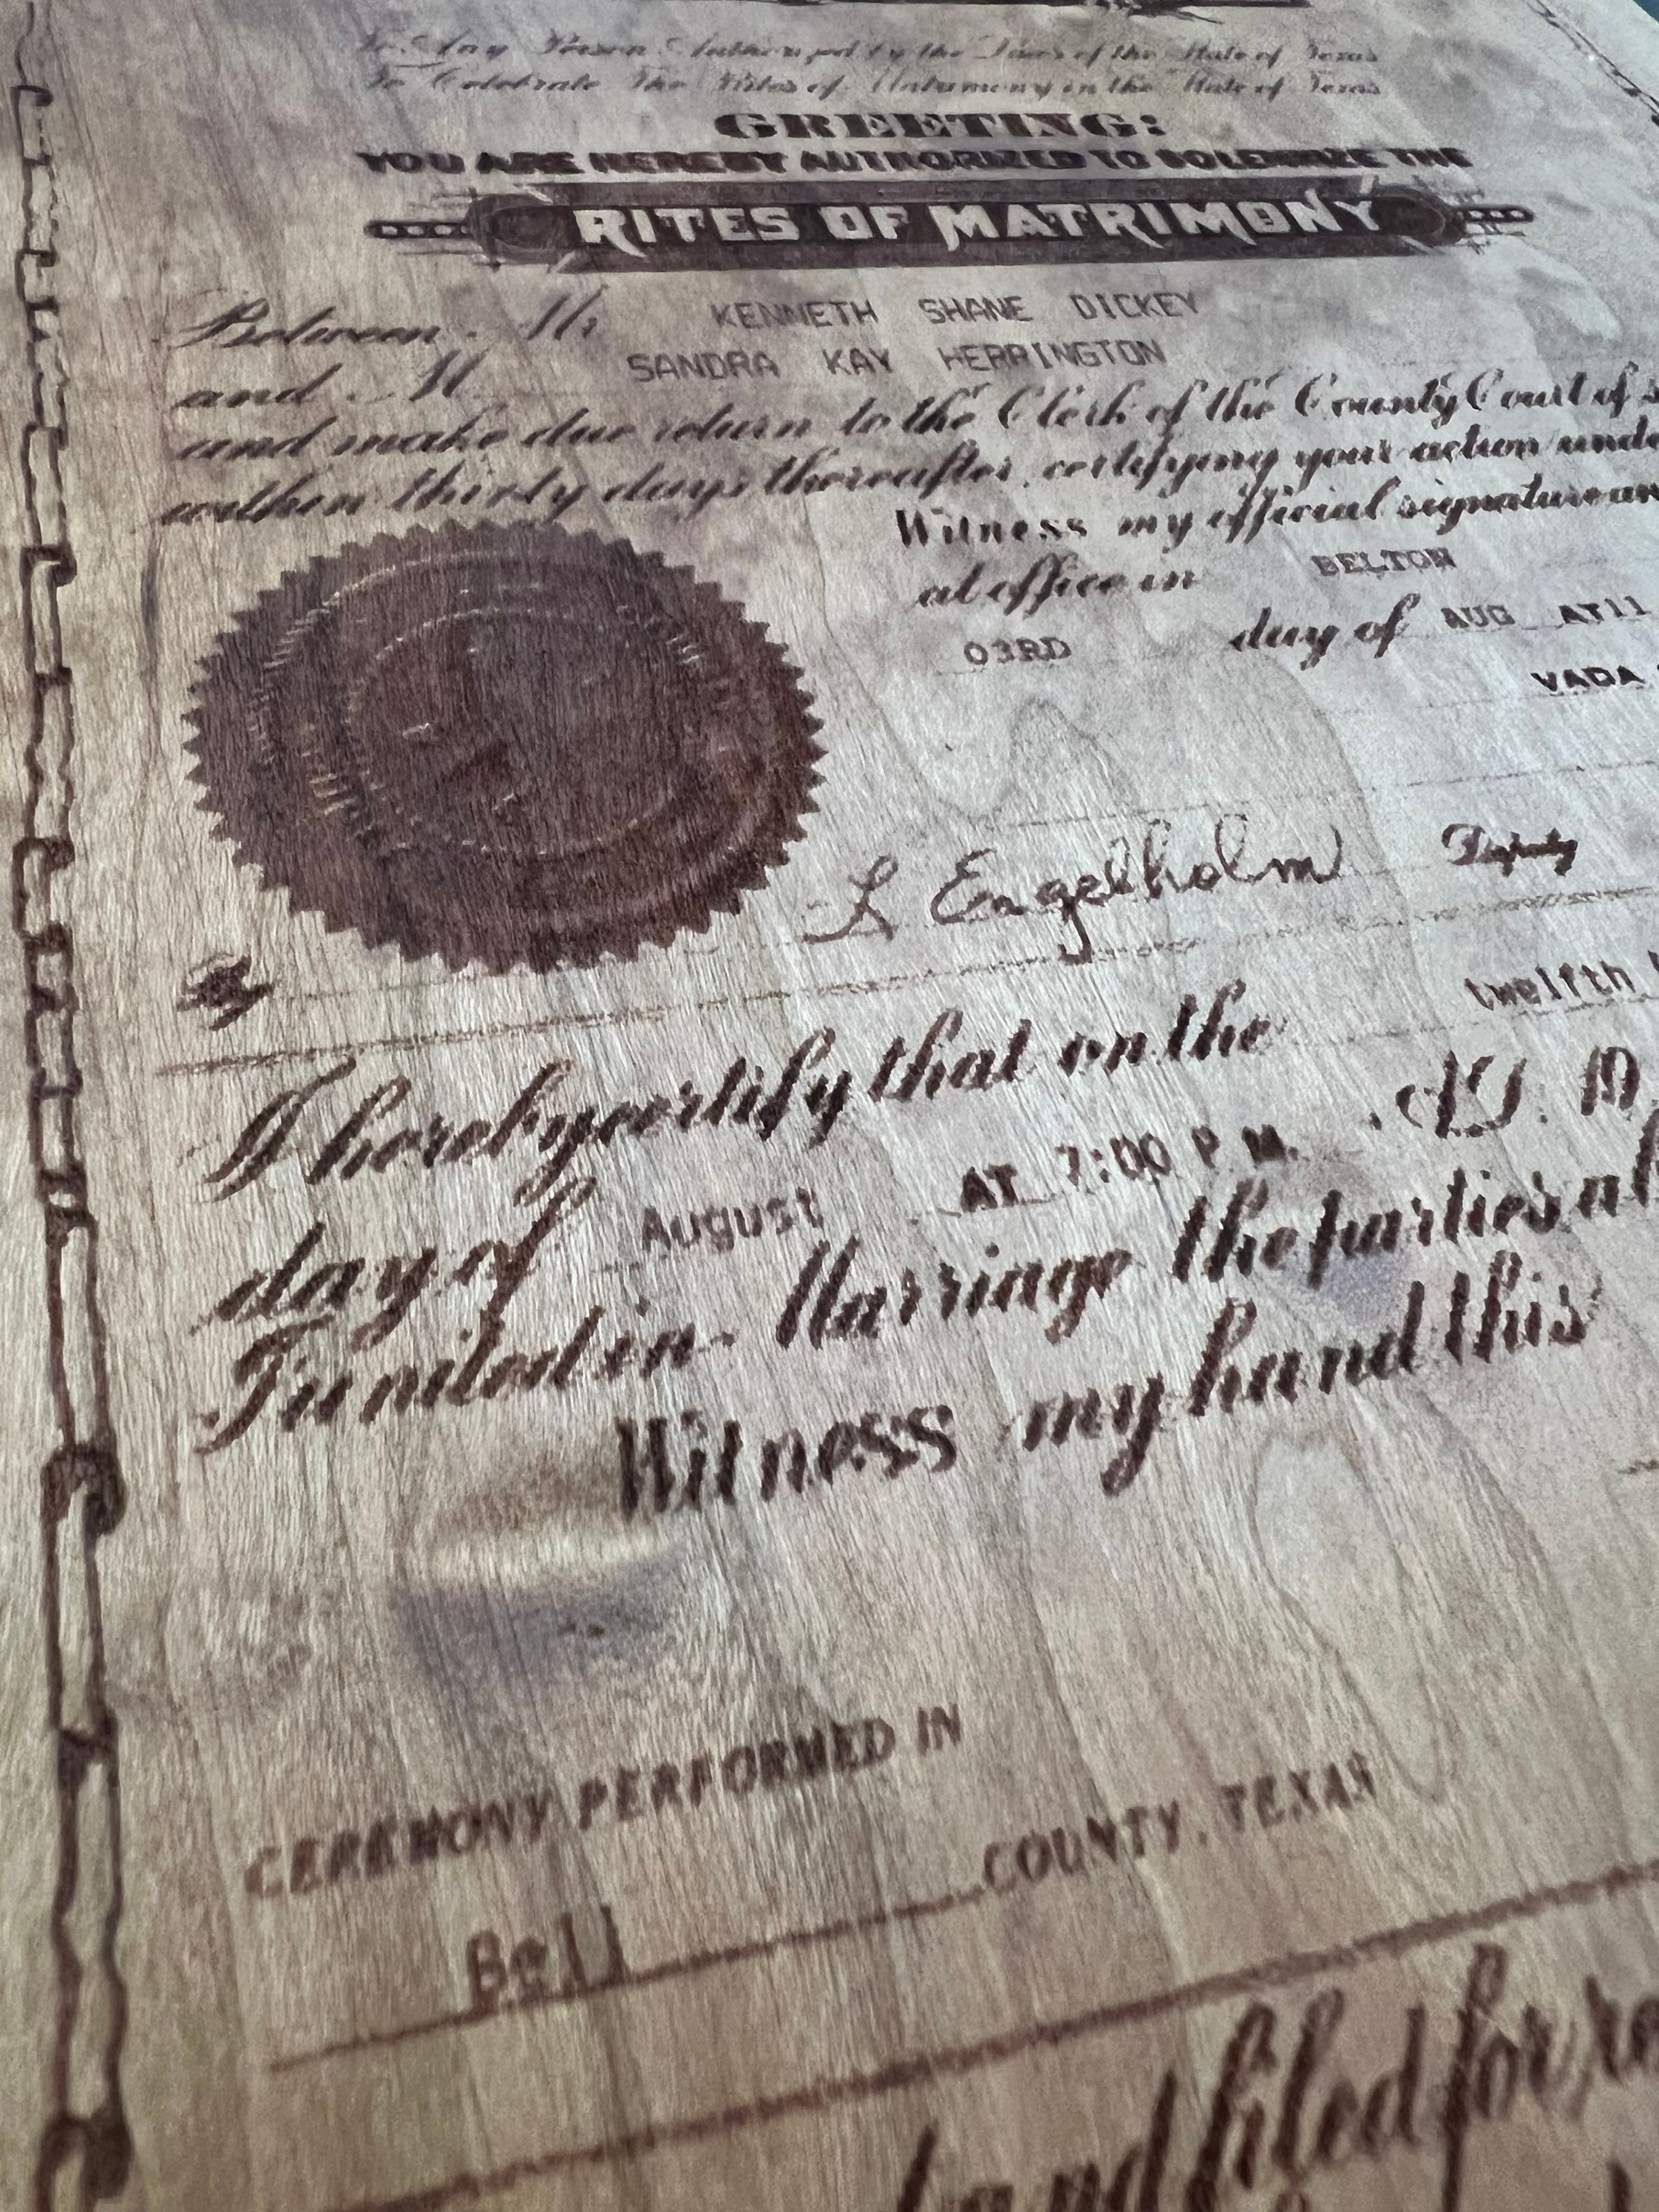 To Any Person Authorized by the Laws of the State of Texas
To Celebrate The Rites of Matrimony in the State of Texas
GREETING:
YOU ARE HEREBY AUTHORIZED TO SOLEMNIZE THE
RITES OF MATRIMONY
Between Mr KENNETH SHANE DICKEY
and M SANDRA KAY HERRINGTON
and make due return to the Clerk of the County Court of
within thirty days thereafter, certifying your action
Witness my official signature
at office in BELTON
03RD day of AUG AT 11
VADA
L Engelholm Deputy
By
I hereby certify that on the twelfth
day of August AT 7:00 P.M. A.D.
I united in Marriage the parties
Witness my hand this
CEREMONY PERFORMED IN
Bell COUNTY, TEXAS
and filed for